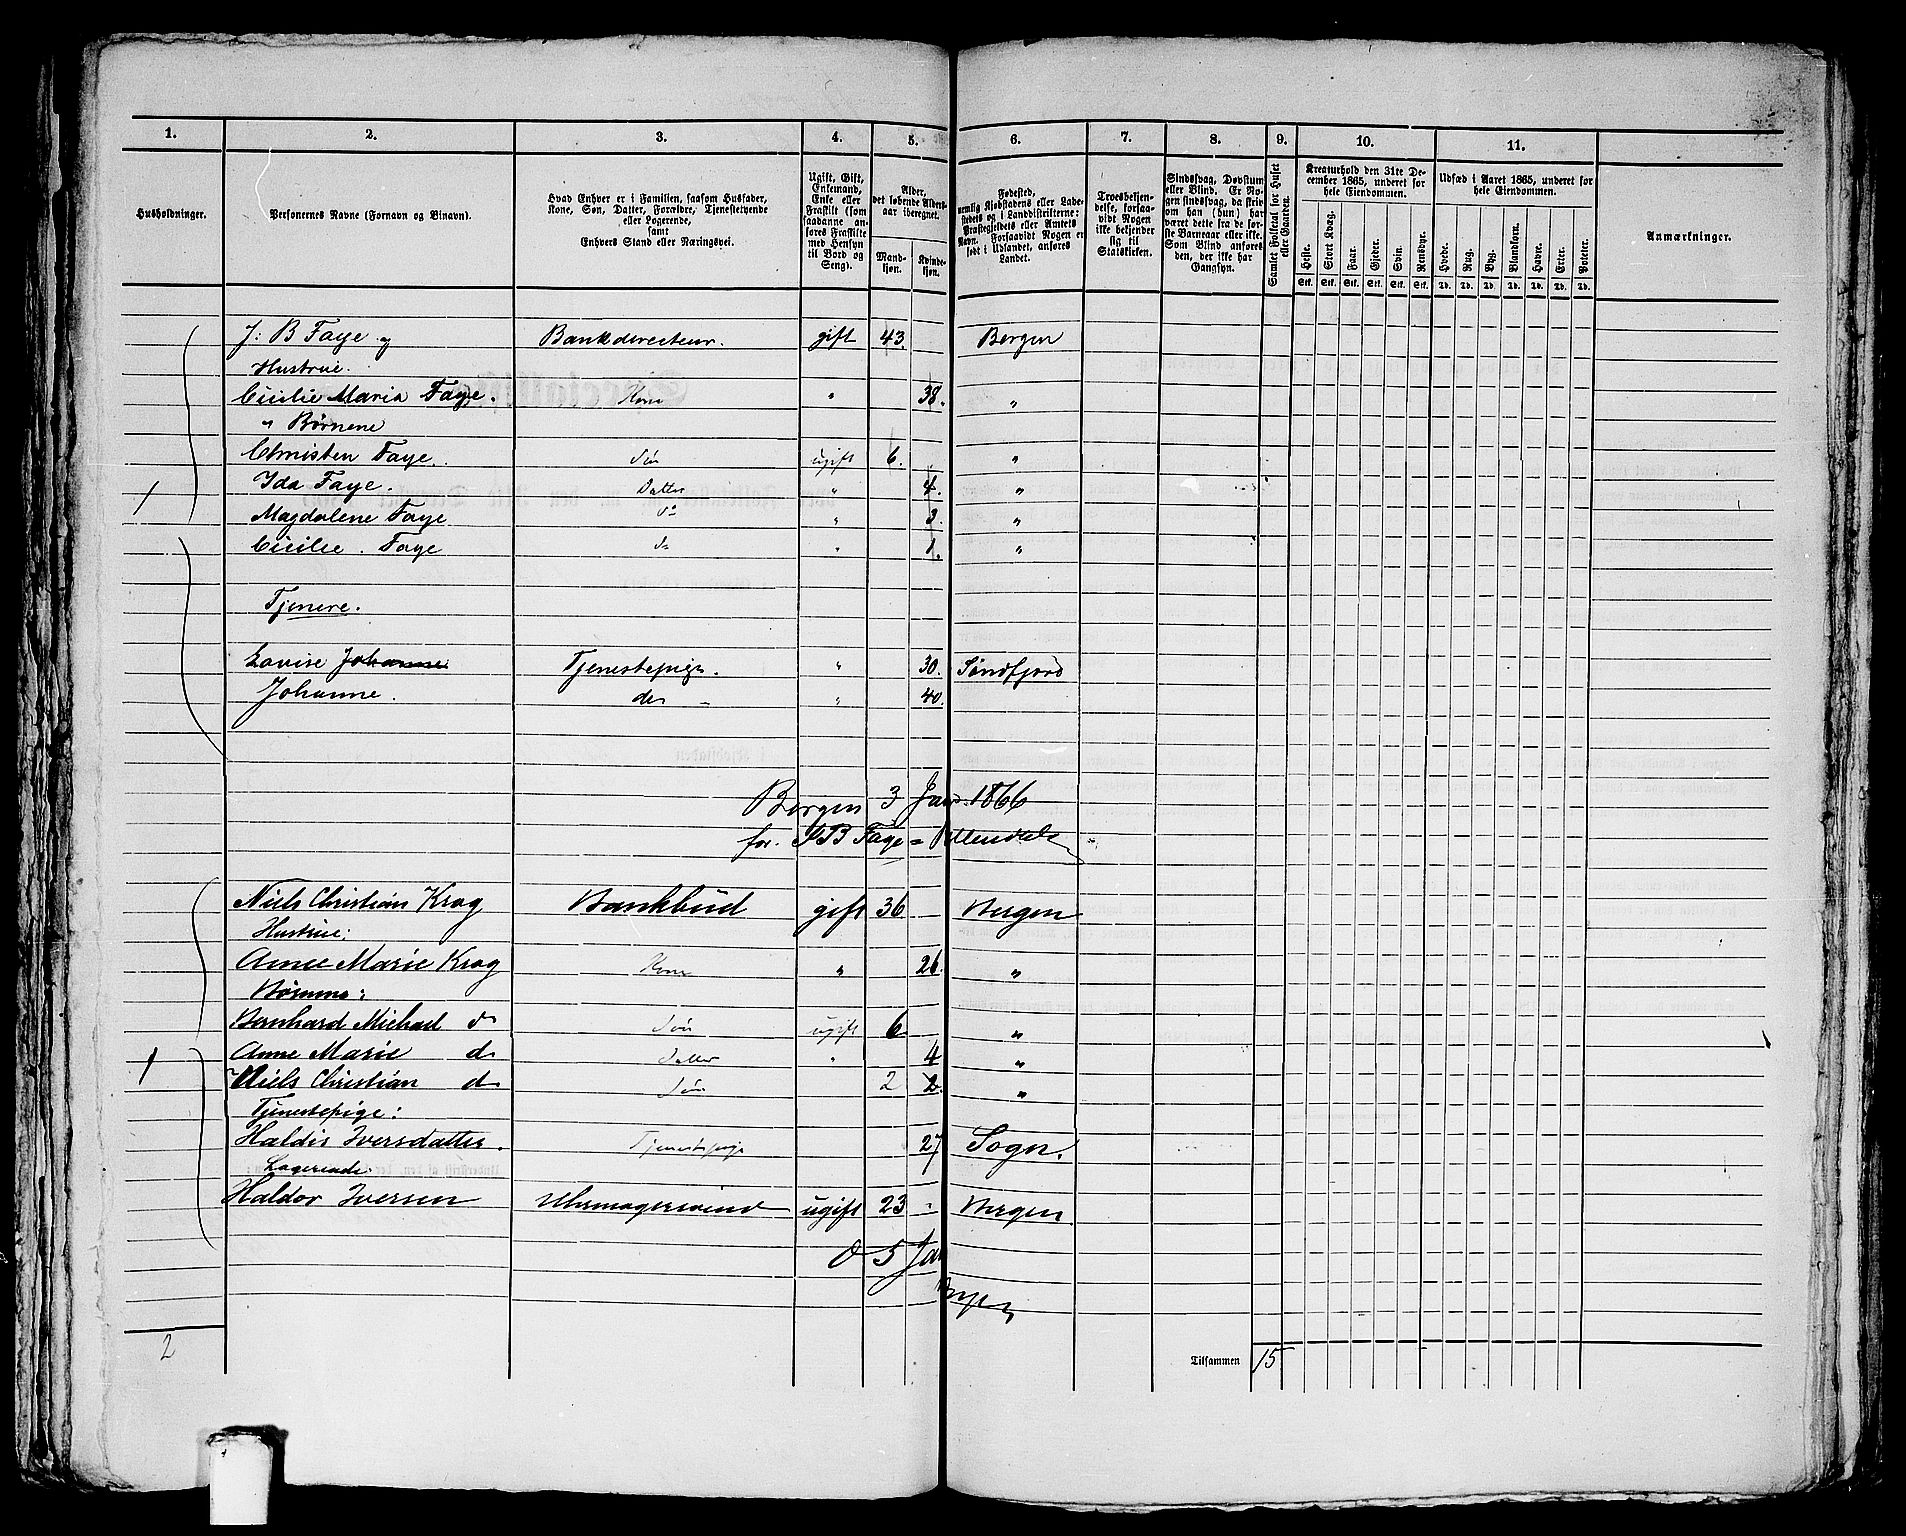 1. 2. 3. 4. 5. 6. 7. 8. 9. 10. 11.
Husholdninger.
Personernes Navne (Fornavn og Binavn).
Hvad Enhver er i Familien, saasom Husfader, Kone, Søn, Datter, Forældre, Tjenestetyende eller Logerende, samt Enhvers Stand eller Næringsvei.
Ugift, Gift, Enkemand, Enke eller Fraskilt (som saadanne anføres Fraskilte med Hensyn til Bord og Seng).
Alder, det løbende Aldersaar iberegnet.
Mandkjøn. Kvindekjøn.
Fødested, nemlig Kjøbstadens eller Ladestedets og i Landdistrikterne: Præstegjeldets eller Amtets Navn. Forsaavidt Nogen er født i Udlandet, anføres Landet.
Troesbekjendelse, forsaavidt Nogen ikke bekjender sig til Statskirken.
Sindssvag, Døvstum eller Blind. Er Nogen sindssvag, da skriv om han (hun) har været det fra de første Barneaar eller ikke. Som Blind anføres den, der ikke har Gangsyn.
Samlet Folketal for Huset eller Gaarden.
Kreaturhold den 31te December 1865, underet for hele Eiendommen.
Heste. Stort Kvæg. Faar. Gjeder. Svin. Rensdyr.
Stk. Stk. Stk. Stk. Stk. Stk.
Udsæd i Aaret 1865, underet for hele Eiendommen.
Hvede. Rug. Byg. Blandkorn. Havre. Erter. Poteter.
Td. Td. Td. Td. Td. Td. Td.
Anmærkninger.
J: B Faye og Bankdirecteur. gift 43. Bergen
Hustrue.
Cicilie Maria Faye. Kone " 38. "
" Børnene
Christen Faye. Søn ugift 6. "
1 Ida Faye. Datter " 4. "
Magdalene Faye do " 3. "
Cicilie. Faye do " 1. "
Tjenere.
Lovise Johanne Tjenestepige. " 30. Søndfjord
Johanne. do " 40.
Bergen 3 Jan. 1866
for. JB Faye =
Niels Christian Krog Bankbud gift 36 Bergen
Hustrue:
Anne Marie Krog Kone " 26. "
Børnene:
Bernhard Michael do Søn ugift 6 "
Anne Marie do Datter " 4 "
1 Niels Christian do Søn 2 2. "
Tjenestepige:
Haldis Iversdatter. Tjenestepige 27 Sogn.
Logerende:
Haldor Iversen Uhrmagersvend ugift 23 Bergen
d 5 Jan
2
Tilsammen 15